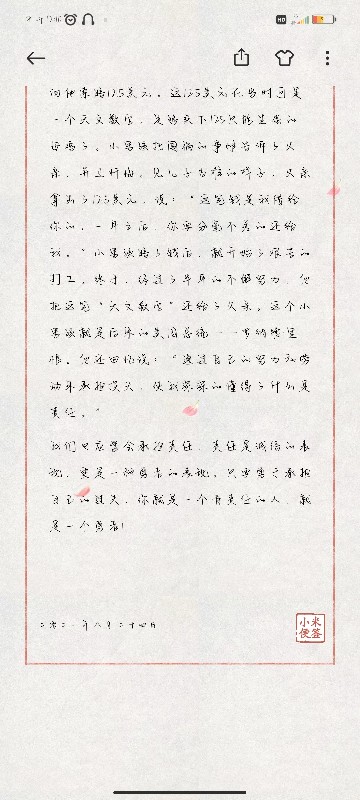 向他索赔12.5美元。这12.5美元在当时可是
一个天文数字，足够买下125只能生蛋的
母鸡了。小男孩把闯祸的事告诉了父
亲，并且忏悔。见儿子为难的样子，父亲
拿出了12.5美元，说："这笔钱是我借给
你的，一年之后，你要分毫不差的还给
我。"小男孩赔了钱后，就开始了艰苦的
打工。终于，经过了半年的不懈努力，他
把这笔"天文数字"还给了父亲。这个小
男孩就是后来的美国总统——罗纳德里
根。他还回忆说："通过自己的努力和劳
动来承担过失，使我深深的懂得了什么是
责任。"
我们也应学会承担责任，责任是诚信的表
现，更是一种勇敢的表现。只要勇于承担
自己的过失，你就是一个有责任的人，就
是一个勇者！
二零二一年八月二十四日
小米
便签